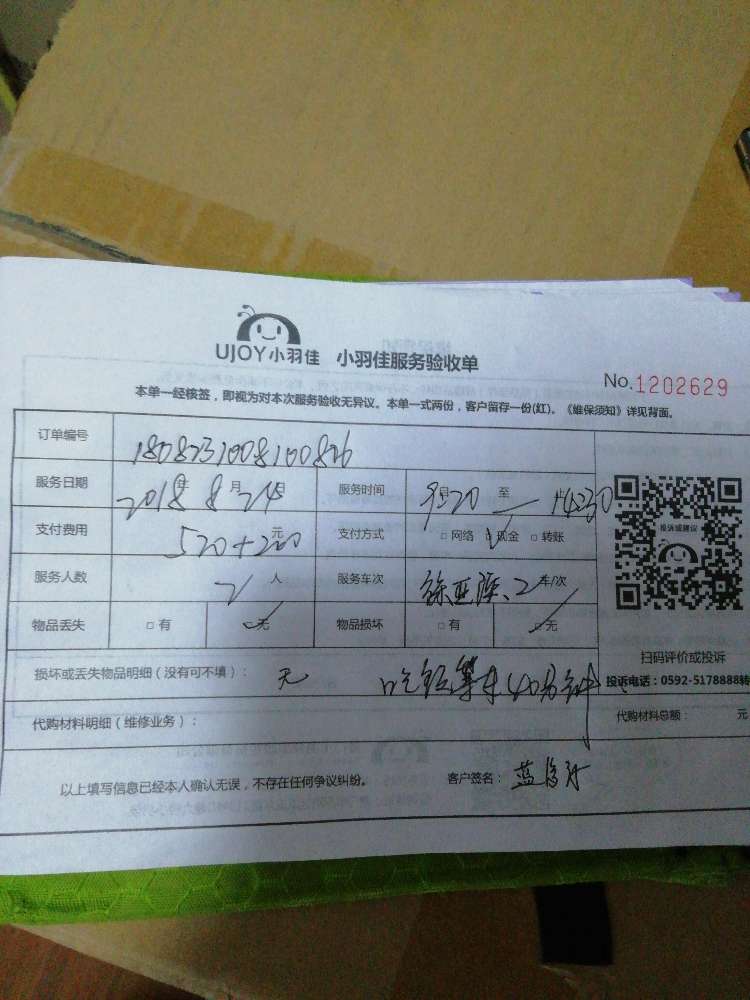 UJOY小羽佳 小羽佳服务验收单
No.1202629
本单一经核签，即视为对本次服务验收无异议。本单一式两份，客户留存一份(红)。《维保须知》详见背面。
订单编号 1808231008100826
服务日期 2018年8月24日 服务时间 9:20 至 14:30
支付费用 520+200元 支付方式 □网络 ☑现金 □转账
服务人数 2人 服务车次 2车/次
物品丢失 □有 ☑无 物品损坏 □有 ☑无
投诉或建议
扫码评价或投诉
损坏或丢失物品明细（没有可不填）： 无 40分钟
投诉电话：0592-5178888转
代购材料明细（维修业务）： 代购材料总额： 元
以上填写信息已经本人确认无误，不存在任何争议纠纷。 客户签名：